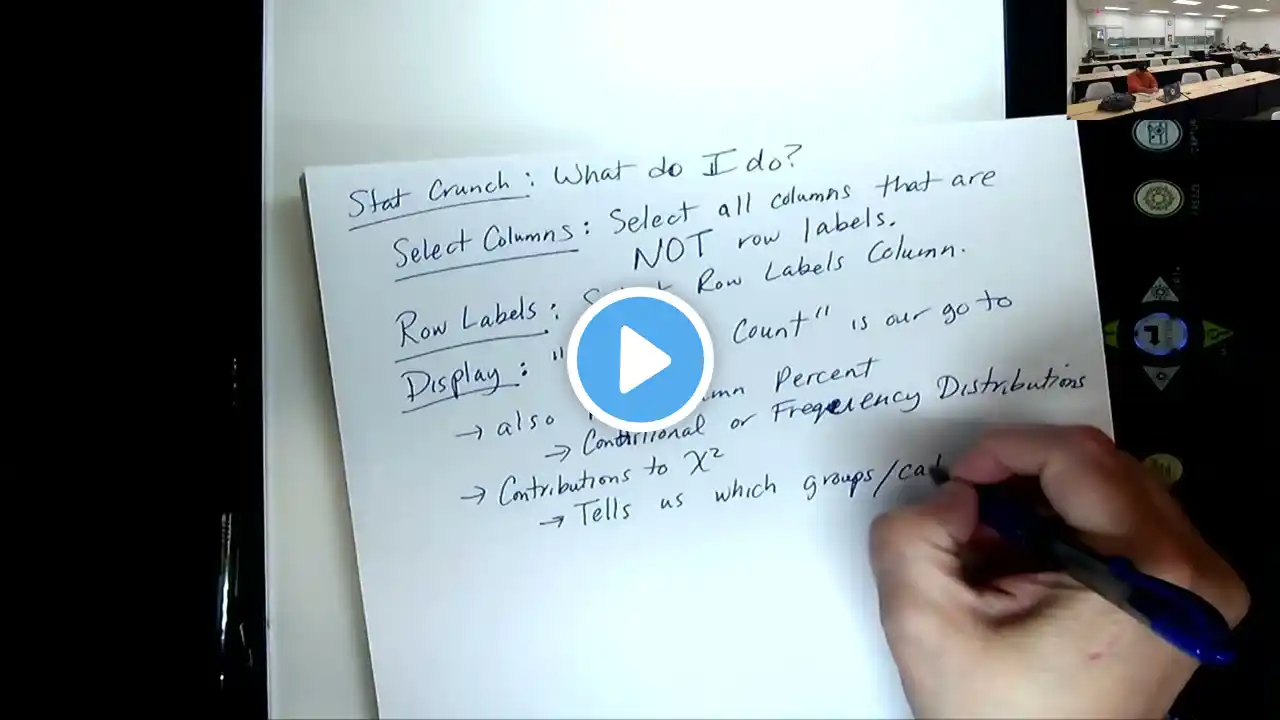 Stat Crunch: What do I do?
Select Columns: Select all columns that are
NOT row labels.
Row Labels: Row Labels Column.
Display: " Count" is our go to
→ also Percent
→ Conditional or Frequency Distributions
→ Contributions to χ²
→ Tells us which groups/cat